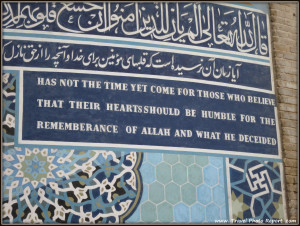 قال الله تعالى
آیا زمان آن نرسیده است که قلبهای مؤمنین برای خدا و آنچه را از حق نازل
HAS NOT THE TIME YET COME FOR THOSE WHO BELIEVE
THAT THEIR HEARTS SHOULD BE HUMBLE FOR THE
REMEMBERANCE OF ALLAH AND WHAT HE DECEIDED
www.Travel Photo Report.com